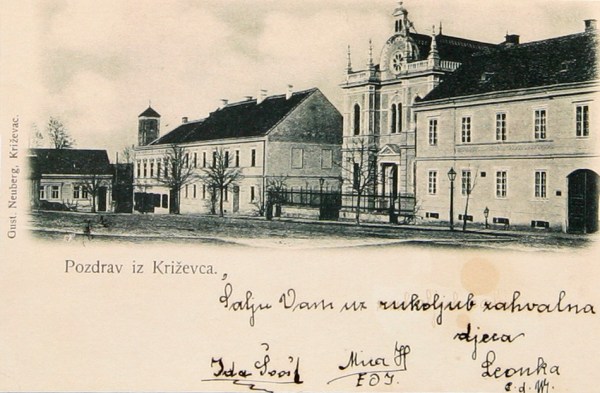 Gust. Neuberg, Križevac.
Pozdrav iz Križevca.
Šalju Vam uz rukoljub zahvalna
djeca
Ida Šoš Mica H Leonka